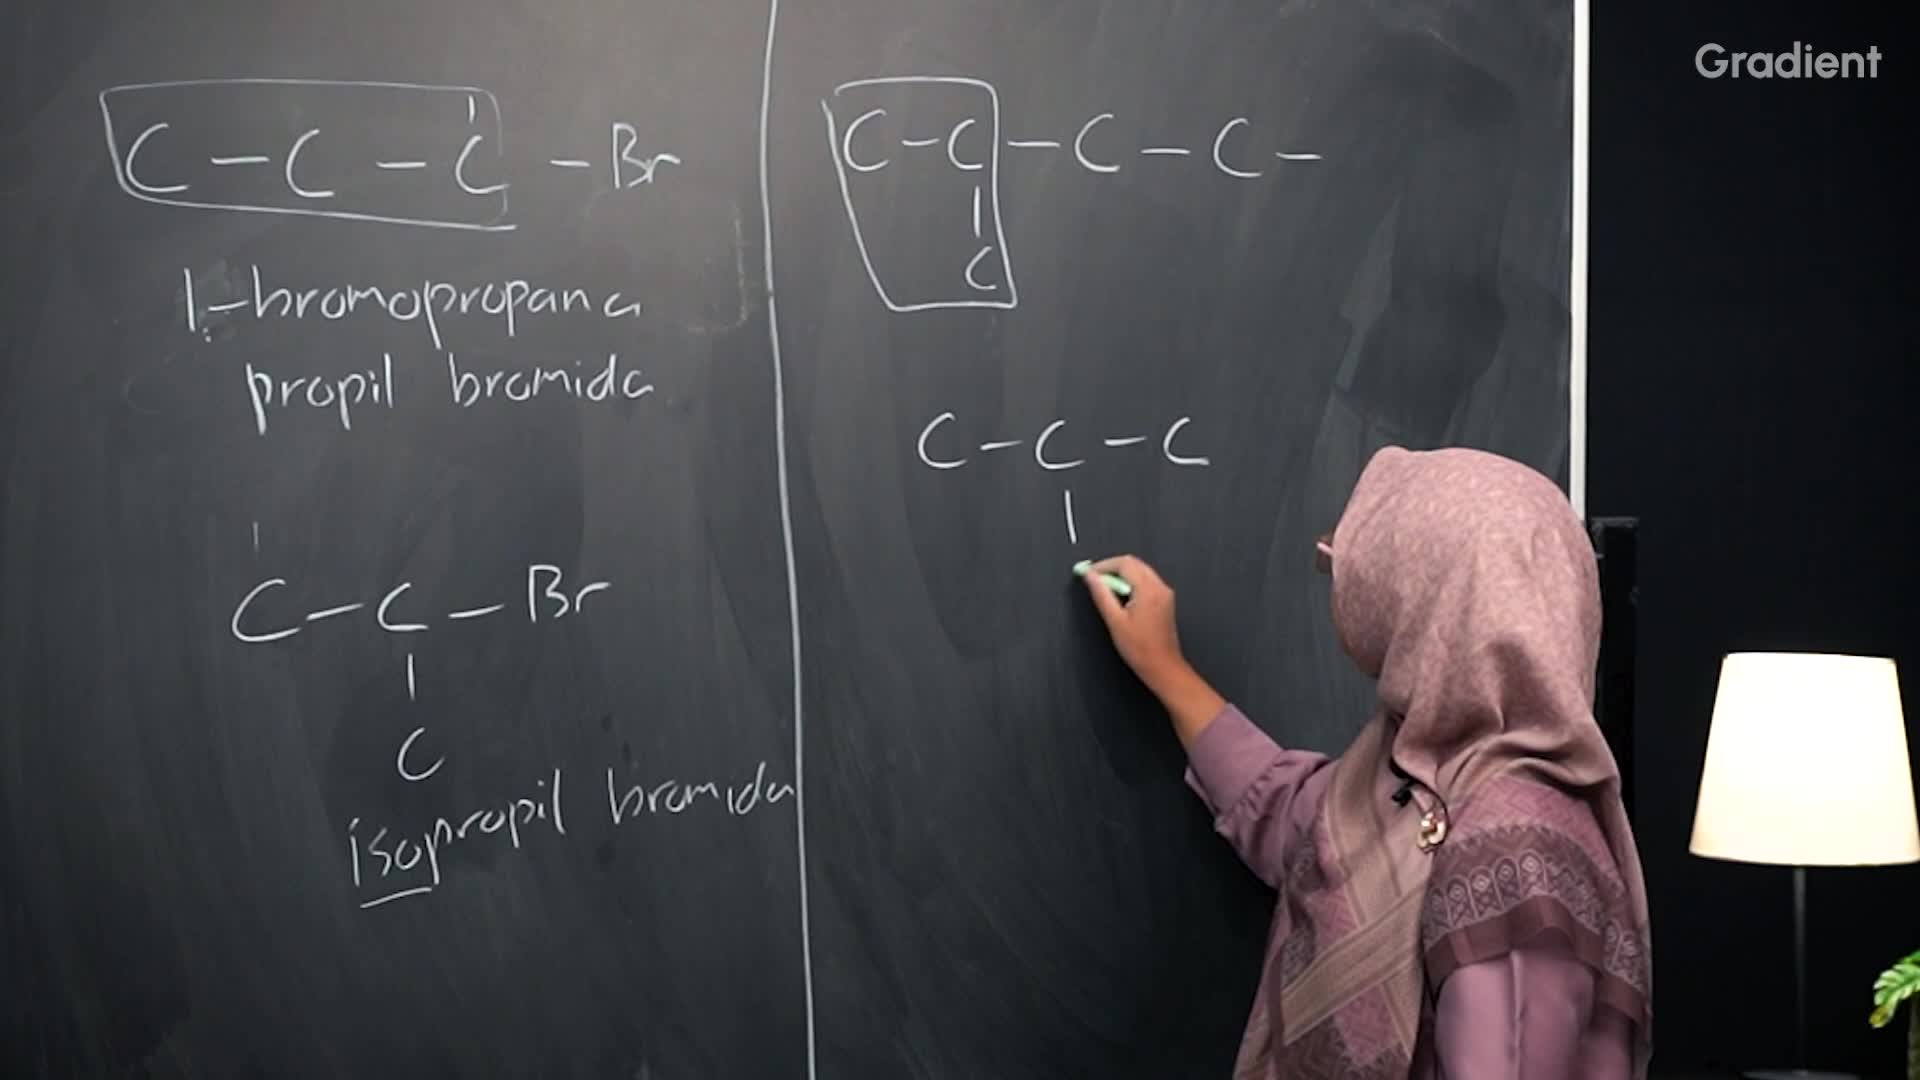 C - C - C - Br
1-bromopropana
propil bromida
C - C - Br
C
isopropil bromida
C - C - C - C -
C
C - C - C
Gradient